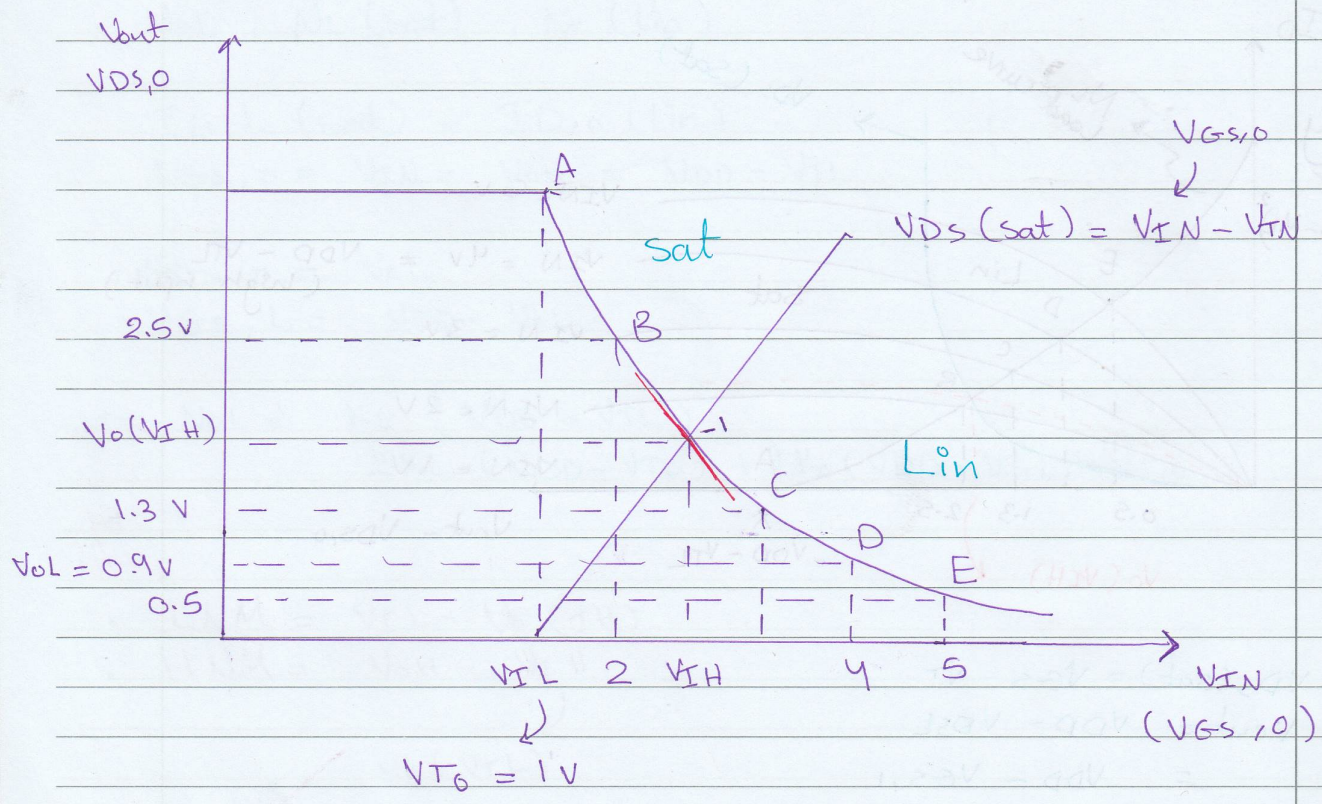 Vout
VDS,0
A
VGS,0
VDS (sat) = VIN - VTN
sat
2.5 V
B
Vo (VIH)
-1
Lin
1.3 V
C
VOL = 0.9 V
D
E
0.5
VIL 2 VIH 4 5 VIN
(VGS,0)
VT0 = 1V